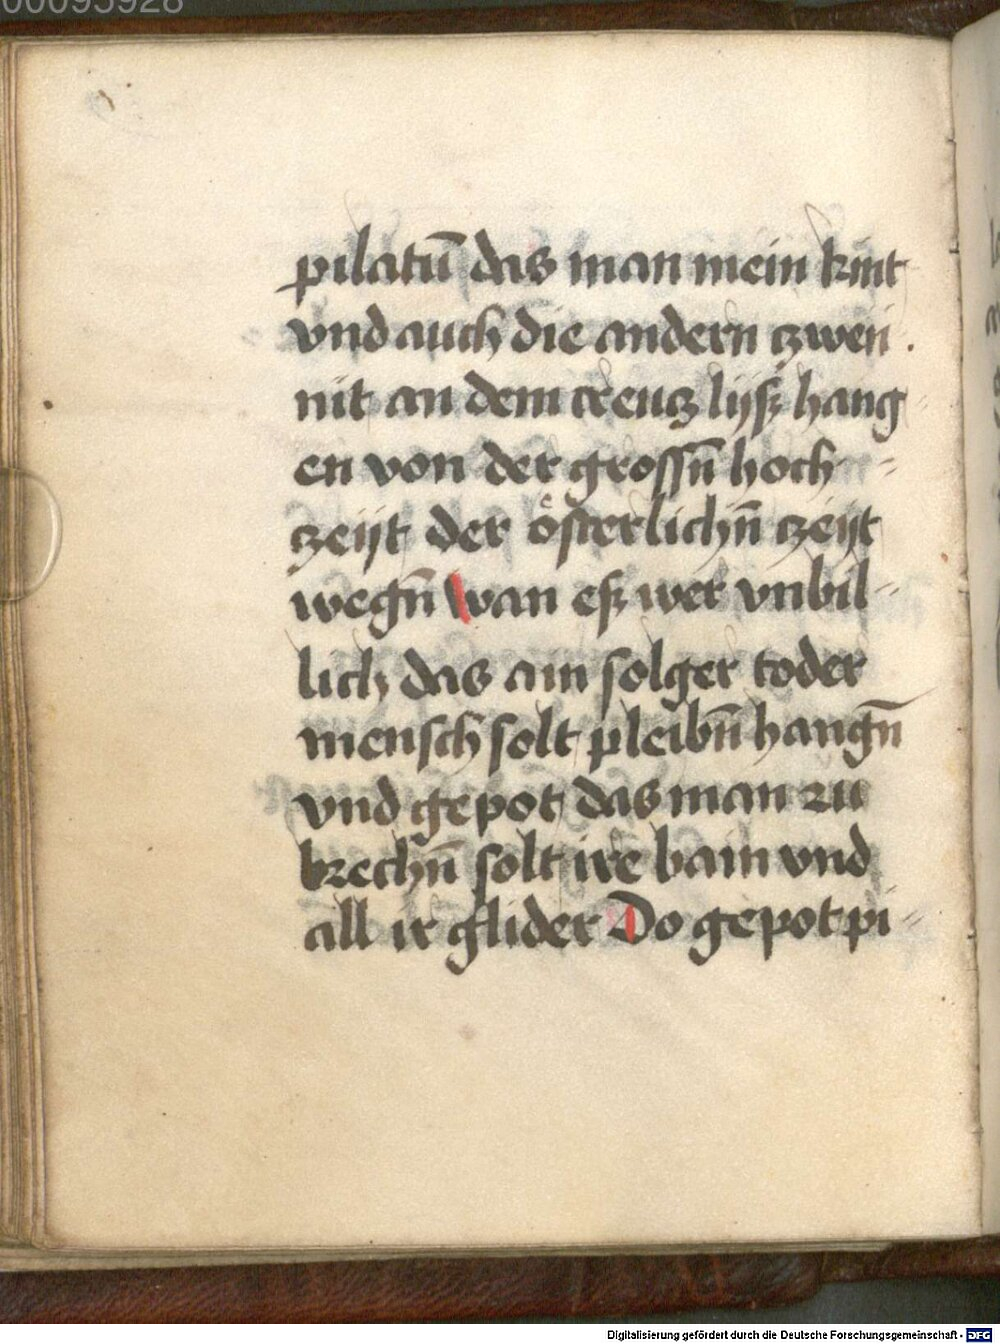 00095928
pilatū das man mein kint
vnd auch die andern czweii .
nit an dem creucz lijsz hang⸗
en von der grossn̄ hoch⸗
czeijt der oͤsterlichn̄ czeijt
wegn̄ Wan esz wer vnbil⸗
lich das ain solger toder
mensch solt pleibn̄ hangn̄
vnd gepot das man zu
brechn̄ solt ire bain vnd
all ir glider Do gepot pi⸗
Digitalisierung gefördert durch die Deutsche Forschungsgemeinschaft - DFG